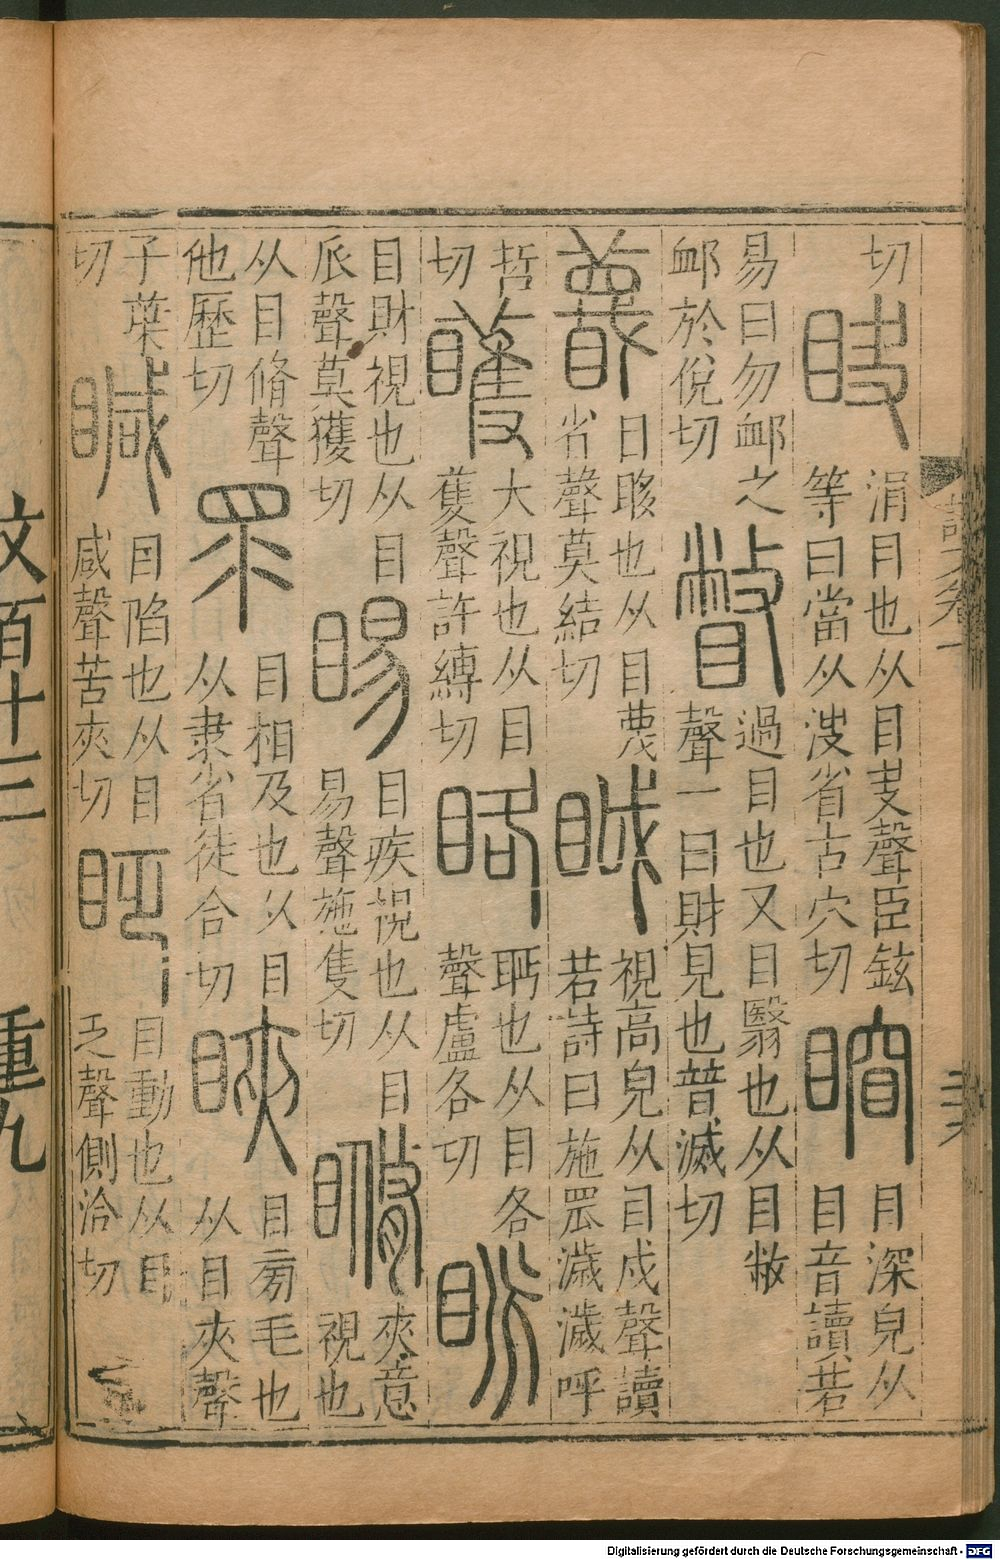 切
䀗
涓目也从目叏聲臣鉉
等曰當从浚省古穴切
目深皃从
目音讀若
易曰勿卹之
卹於悅切
瞥
過目也又目翳也从目敝
聲一曰財見也普滅切
䁾
目眵也从目蔑
省聲莫結切
眓
視高皃从目戉聲讀
若詩曰施罛濊濊呼
哲
切
矆
大視也从目
蒦聲許縛切
䀩
眄也从目各
聲盧各切
眽
目財視也从目
𠂢聲莫獲切
睗
目疾視也从目
易聲施隻切
夾意
視也
从目脩聲
他歷切
眔
目相及也从目
从隶省徒合切
䀹
目旁毛也
从目夾聲
子葉
切
䁍
目陷也从目
咸聲苦夾切
眨
目動也从目
乏聲側洽切
文百十三 重九
Digitalisierung gefördert durch die Deutsche Forschungsgemeinschaft - DFG